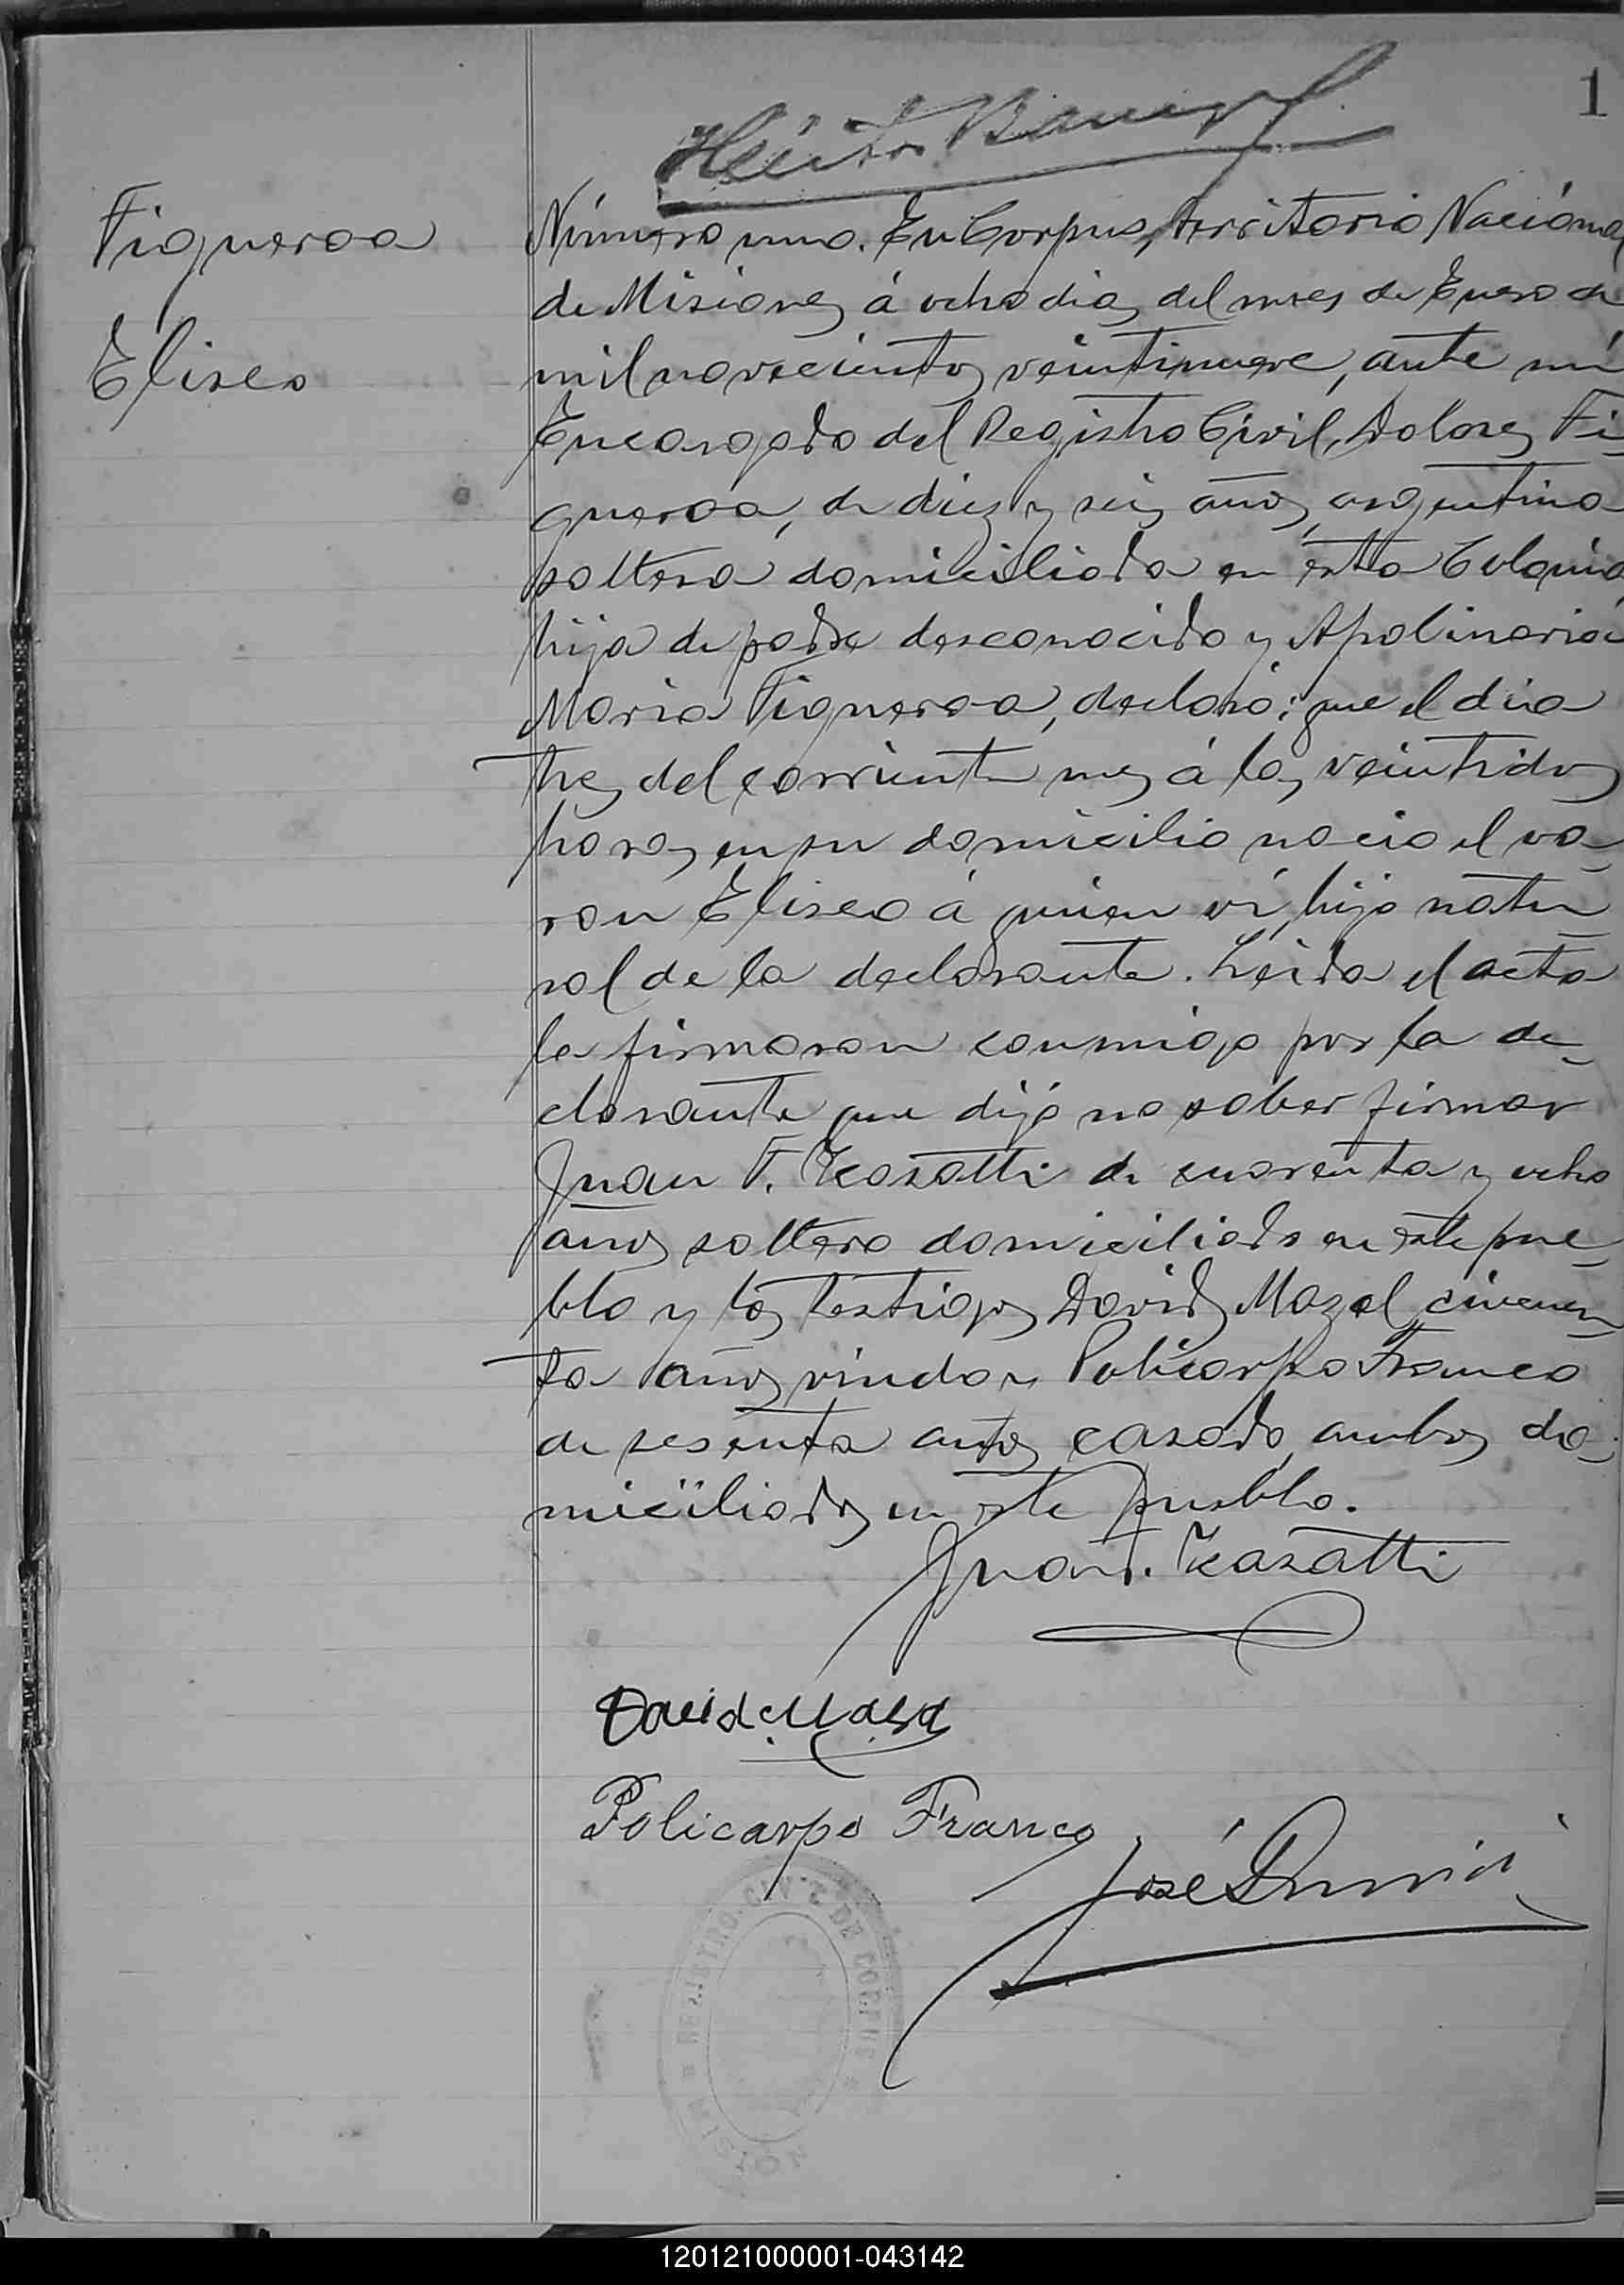 1
Figueroa
Eliseo
Número uno. En Corpus, territorio Nacional
de Misiones á ocho dias del mes de Enero de
mil novecientos veintinueve, ante mí
Encargado del Registro Civil, Dolores Fi-
gueroa, de diez y seis años, argentina
soltera domiciliada en ésta Colonia
hija de padre desconocido y Apolinaria
Maria Figueroa, declaró: que el dia
tres del corriente mes á las veintidos
horas en su domicilio nacio el va-
ron Eliseo á quien ví, hijo natu-
ral de la declarante. Leida el acta
la firmaron conmigo por la de-
clarante que dijó no saber firmar
Juan F. Kasatti de cuarenta y ocho
años soltero domiciliado en este pue-
blo y los testigos David Mazal cincuen-
ta años viudo y Policarpo Franco
de sesenta años casado, ambos do-
miciliados en este pueblo.
Juan F. Kasatti
David Mazal
Policarpo Franco
José
REGISTRO CIVIL DE CORPUS
MISIONES
120121000001-043142